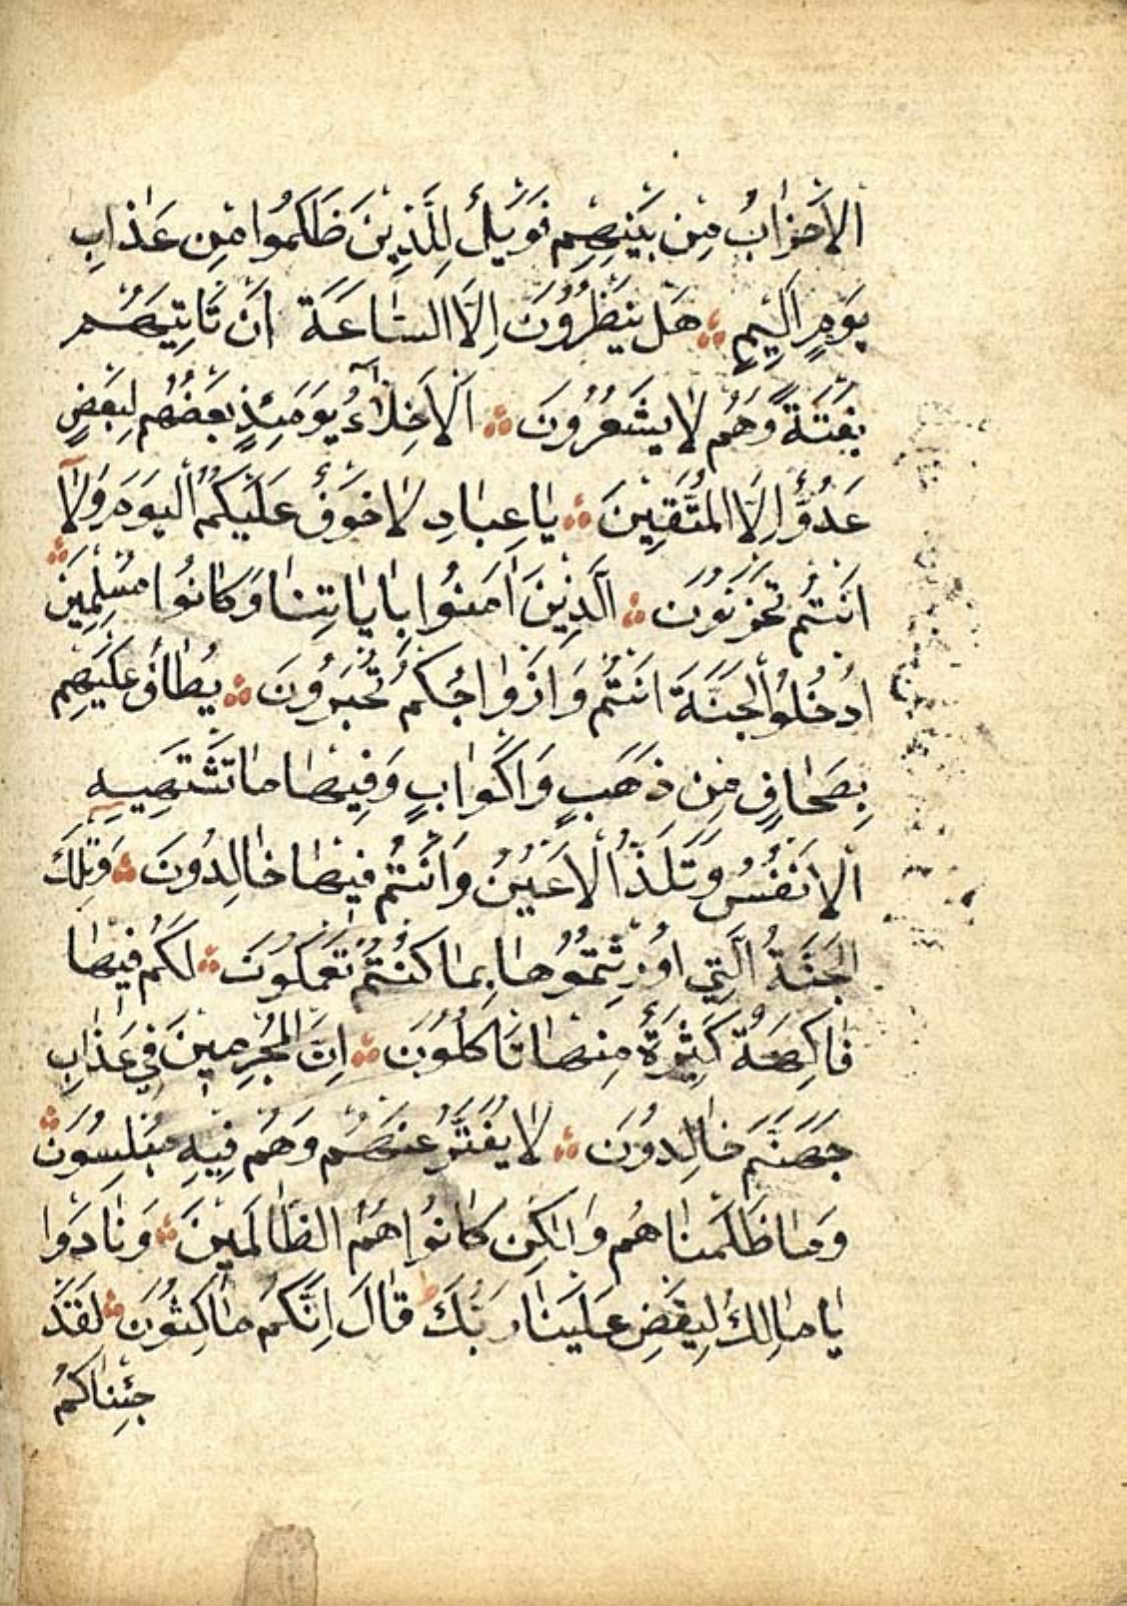 الْاَحْزَابُ مِنْ بَيْنِهِمْ فَوَيْلٌ لِلَّذِينَ ظَلَمُوا مِنْ عَذَابِ
يَوْمٍ اَلِيمٍ ۞ هَلْ يَنْظُرُونَ اِلَّا السَّاعَةَ اَنْ تَاْتِيَهُمْ
بَغْتَةً وَهُمْ لَا يَشْعُرُونَ ۞ اَلْاَخِلَّاءُ يَوْمَئِذٍ بَعْضُهُمْ لِبَعْضٍ
عَدُوٌّ اِلَّا الْمُتَّقِينَ ۞ يَاعِبَادِ لَا خَوْفٌ عَلَيْكُمُ الْيَوْمَ وَلَا
اَنْتُمْ تَحْزَنُونَ ۞ الَّذِينَ اٰمَنُوا بِاٰيَاتِنَا وَكَانُوا مُسْلِمِينَ ۞
اُدْخُلُوا الْجَنَّةَ اَنْتُمْ وَاَزْوَاجُكُمْ تُحْبَرُونَ ۞ يُطَافُ عَلَيْهِمْ
بِصِحَافٍ مِنْ ذَهَبٍ وَاَكْوَابٍ وَفِيهَا مَا تَشْتَهِيهِ
الْاَنْفُسُ وَتَلَذُّ الْاَعْيُنُ وَاَنْتُمْ فِيهَا خَالِدُونَ ۞ وَتِلْكَ
الْجَنَّةُ الَّتِي اُورِثْتُمُوهَا بِمَا كُنْتُمْ تَعْمَلُونَ ۞ لَكُمْ فِيهَا
فَاكِهَةٌ كَثِيرَةٌ مِنْهَا تَاْكُلُونَ ۞ اِنَّ الْمُجْرِمِينَ فِي عَذَابِ
جَهَنَّمَ خَالِدُونَ ۞ لَا يُفَتَّرُ عَنْهُمْ وَهُمْ فِيهِ مُبْلِسُونَ ۞
وَمَا ظَلَمْنَاهُمْ وَلٰكِنْ كَانُوا هُمُ الظَّالِمِينَ ۞ وَنَادَوْا
يَامَالِكُ لِيَقْضِ عَلَيْنَا رَبُّكَ ط قَالَ اِنَّكُمْ مَاكِثُونَ ۞ لَقَدْ
جِئْنَاكُمْ